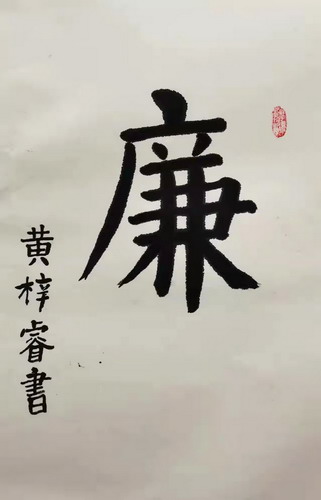 廉
黄梓睿書